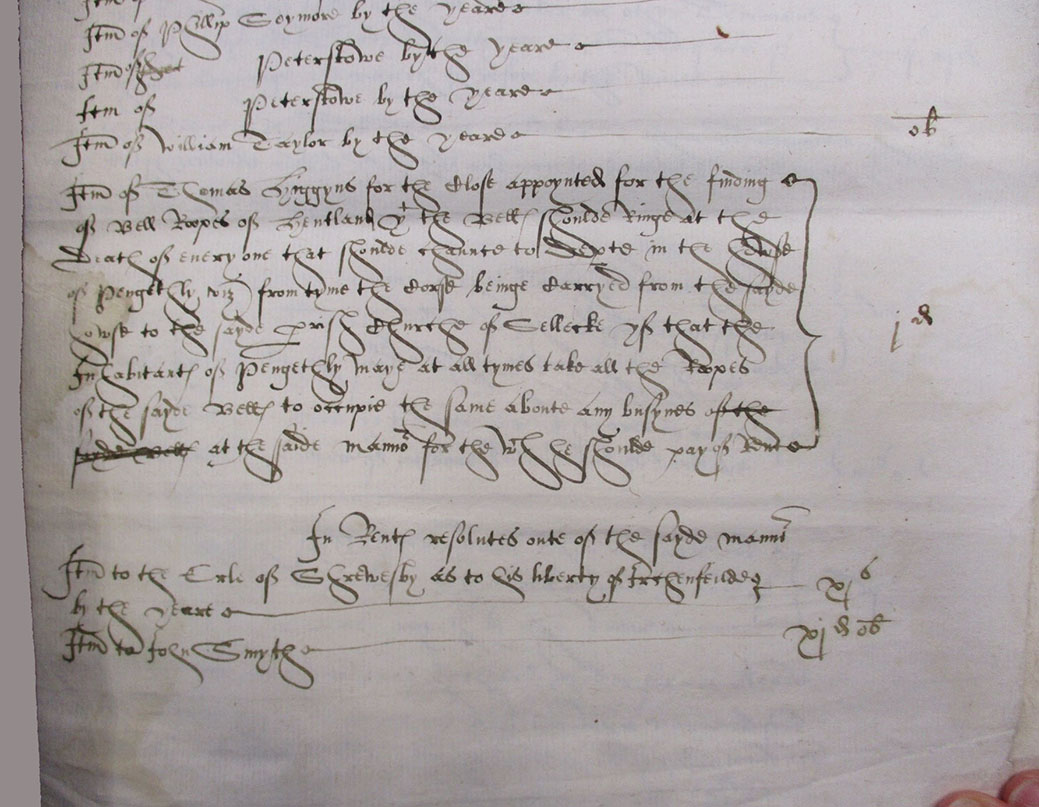 Itm of Phillip Seymore by the yeare
Itm of Peterstowe by the yeare
Itm of Peterstowe by the yeare
Itm of William Taylor by the yeare ob
Itm of Thomas Hynggyns for the Close appoynted for the finding
of Bell Roopes of Hentland yt the Bells shoulde Ringe at the
Death of every one that shoulde chaunce to in the howse
of Pengethly viz from tyme the Corse beinge Carryed from the sayde
howse to the sayde prish Churche of Sellecke yf that the
Inhabitants of Pengethly maye at all tymes take all the Roopes
of the sayde Bells to occupie the same aboute any busynes of the
sayde Bells at the saide mannor for the wch he shoulde pay of Rent
jd
In Rents resolutes oute of the sayde mannor
Itm to the Erle of Shrewesby as to his liberty of Irchenfeilde xjs
by the yeare
Itm to John Smythe xjd ob